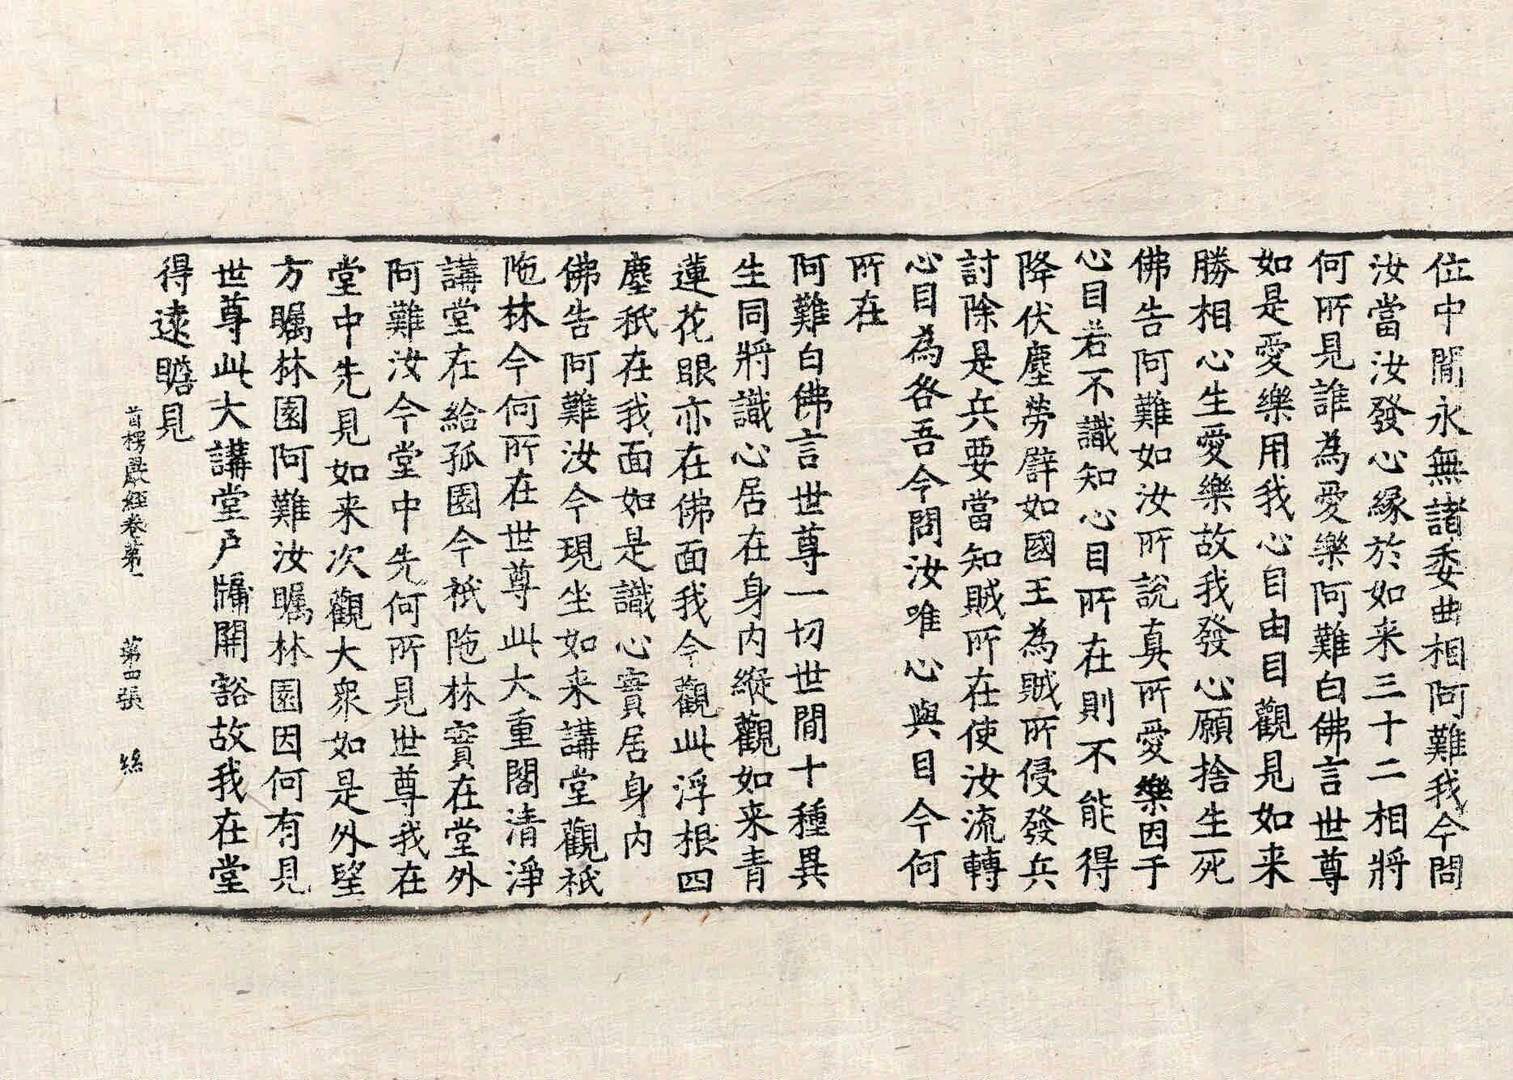 位中間永無諸委曲相阿難我今問
汝當汝發心緣於如来三十二相將
何所見誰為愛樂阿難白佛言世尊
如是愛樂用我心目由目觀見如来
勝相心生愛樂故我發心願捨生死
佛告阿難如汝所說真所愛樂因于
心目若不識知心目所在則不能得
降伏塵勞譬如國王為賊所侵發兵
討除是兵要當知賊所在使汝流轉
心目為咎吾今問汝唯心與目今何
所在
阿難白佛言世尊一切世間十種異
生同將識心居在身內縱觀如来青
蓮花眼亦在佛面我今觀此浮根四
塵秖在我面如是識心實居身內
佛告阿難汝今現坐如来講堂觀祇
陁林今何所在世尊此大重閣清淨
講堂在給孤園今祇陁林實在堂外
阿難汝今堂中先何所見世尊我在
堂中先見如来次觀大衆如是外望
方矚林園阿難汝矚林園因何有見
世尊此大講堂戶牖開豁故我在堂
得遠瞻見
首楞嚴經卷第一 第四張 絲